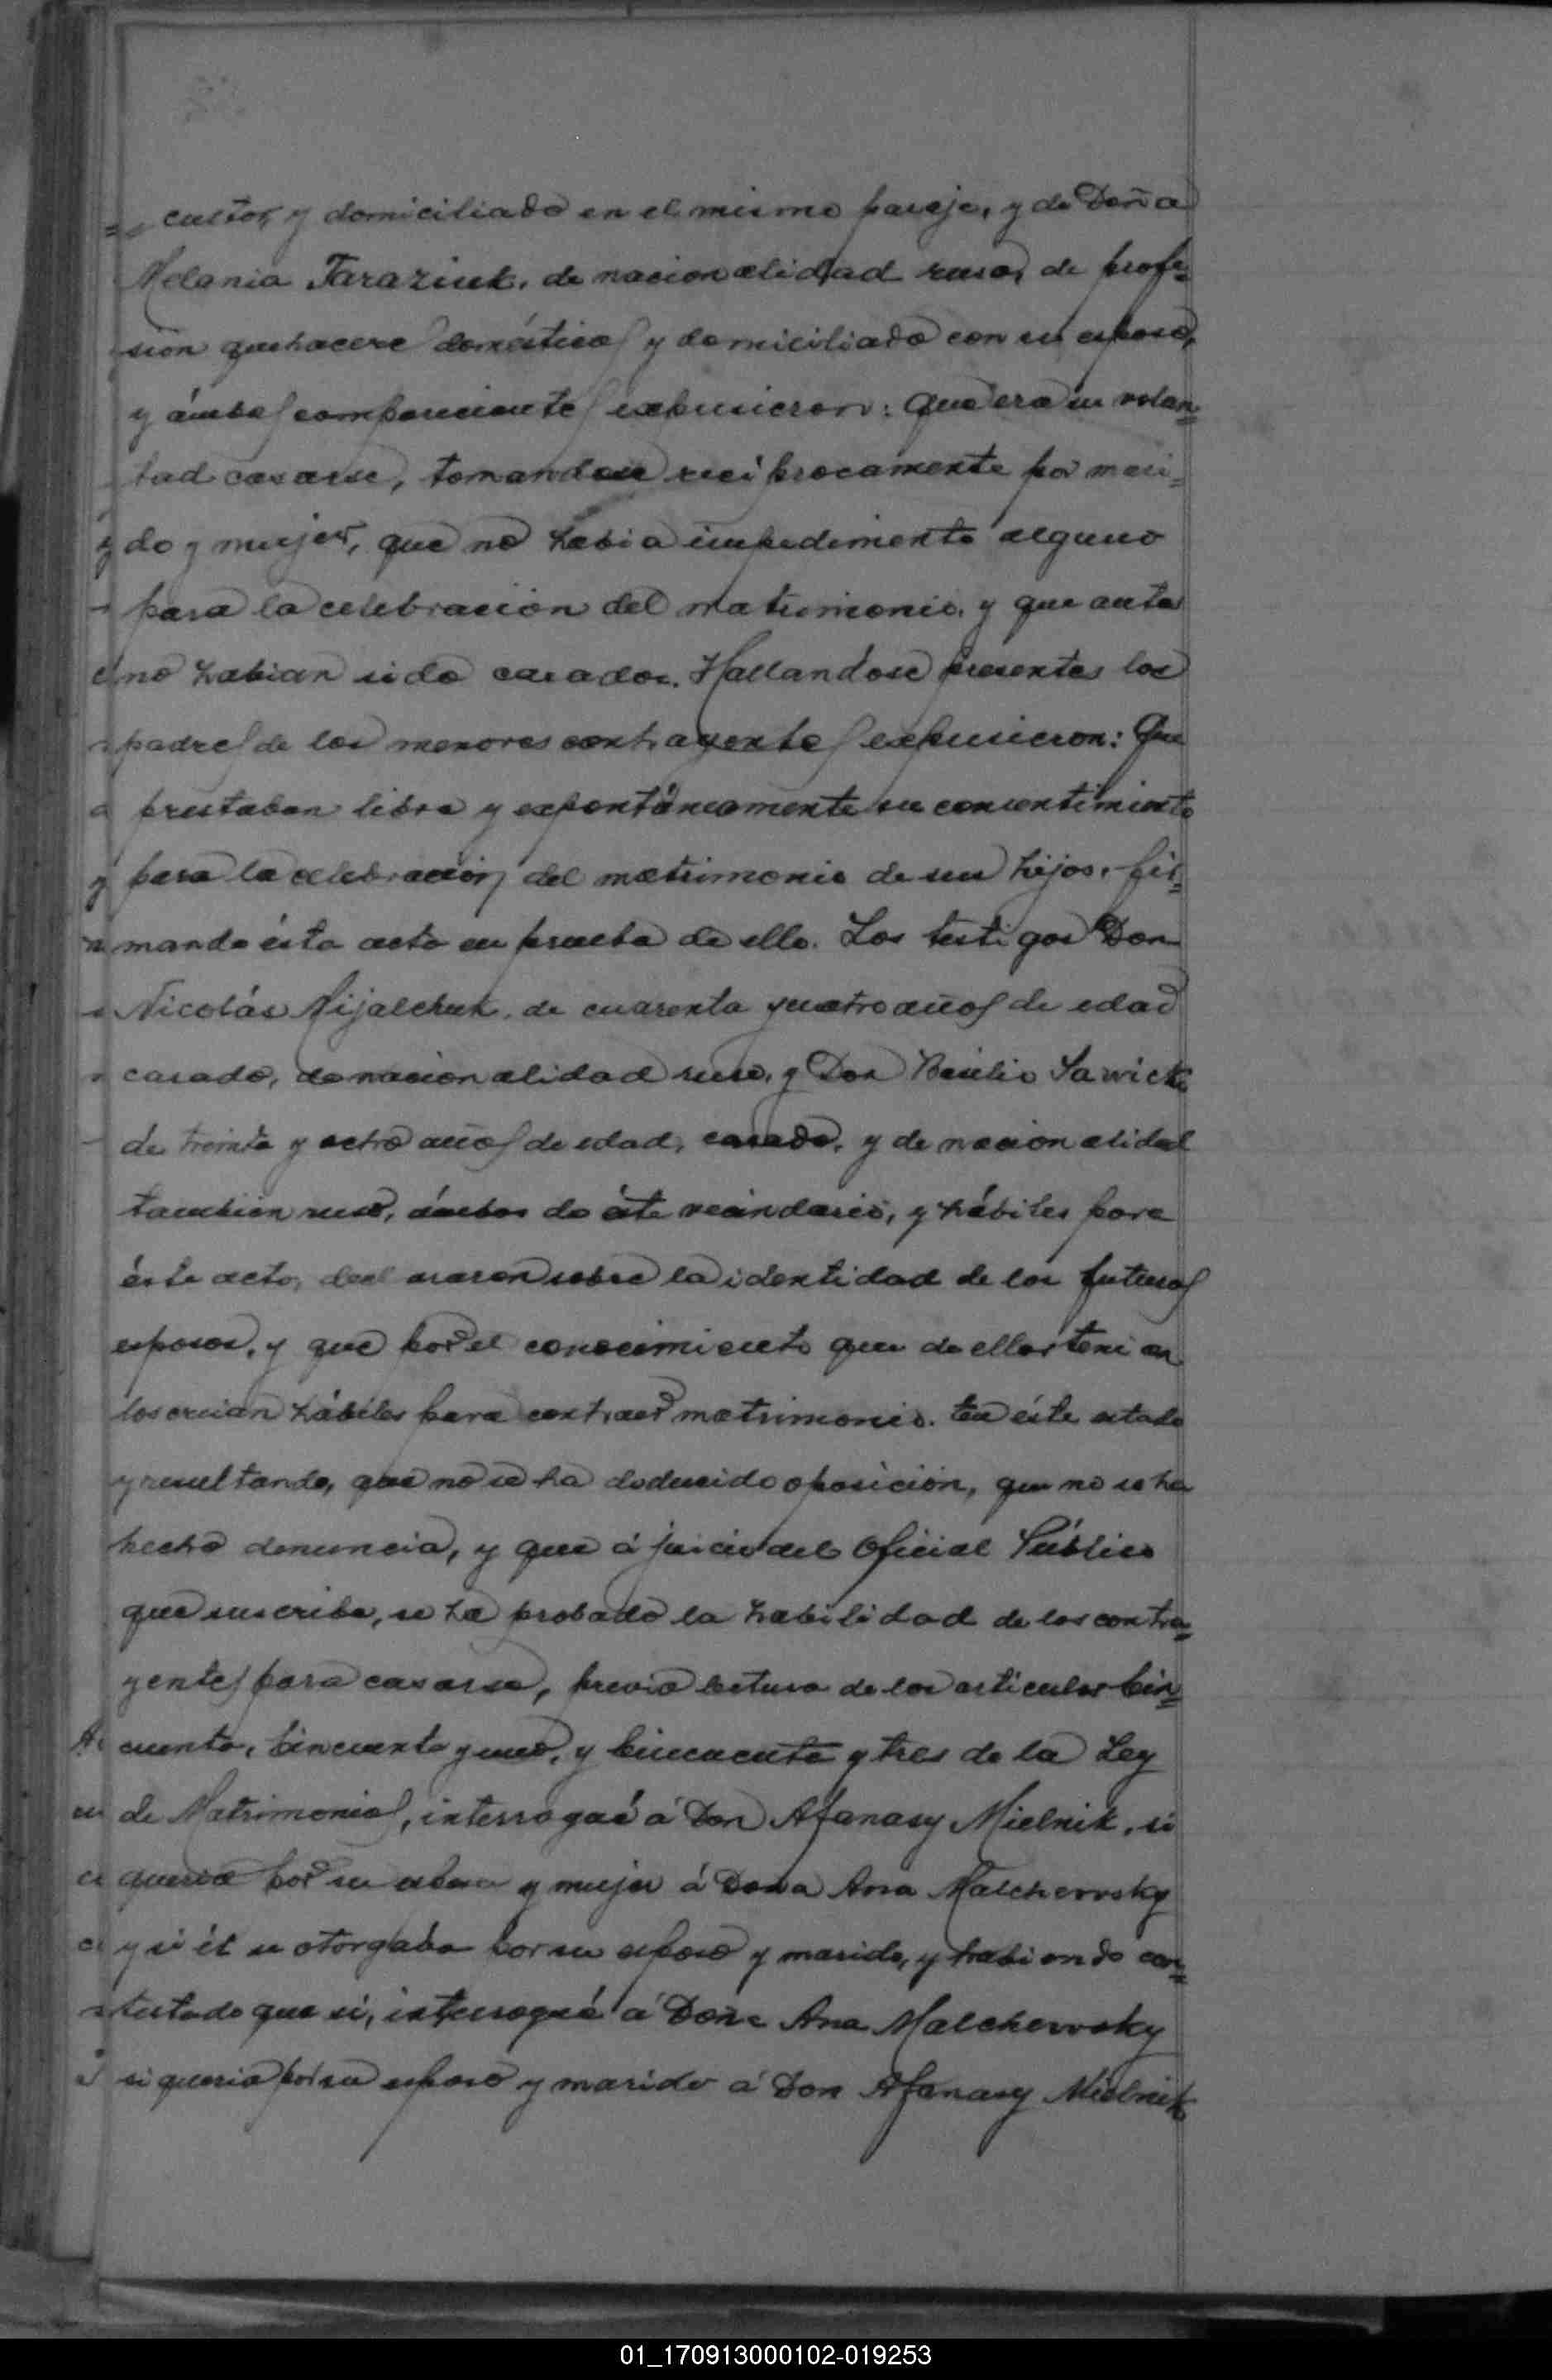 cultor, y domiciliado en el mismo paraje, y de Doña
Melania Taraziuk, de nacionalidad rusa, de profe=
sion quehacere domésticos y domiciliado con su esposo,
y ámbos comparecientes expusieron: Que era su volun=
tad casarse, tomandose recíprocamente por mari=
do y mujer, que no habia impedimento alguno
para la celebracion del matrimonio, y que antes
no habian sido casados. Hallandose presentes los
padres de los menores contrayentes expusieron: Que
prestaban libre y espontáneamente su consentimiento
para la celebracion del matrimonio de sus hijos, fir=
mando ésta acta en prueba de ello. Los testigos Don
Nicolás Mijalchuk, de cuarenta y cuatro años de edad
casado, de nacionalidad ruso, y Don Basilio Sawicki
de treinta y ochro años de edad, casado, y de nacionalidad
tambien ruso, ámbos de éste vecindario, y hábiles para
éste acto, declararon sobre la identidad de los futuros
esposos, y que por el conocimiento que de ellos tenian
los creian hábiles para contraer matrimonio. En éste estado
y resultando, que no se ha deducido oposición, que no se ha
hecho denuncia, y que á juicio del Oficial Público
que suscribe, se ha probado la habilidad de los contra=
yentes para casarse, previa lectura de los articulos Cin=
cuenta, Cincuenta y uno, y Cincuenta y tres de la Ley
de Matrimonios, interrogué á Don Afanasy Mielnik, si
queria por su esposa y mujer á Dona Ana Malchewsky
y si él se otorgaba por su esposo y marido, y habiendo con=
testado que si, interrogué á Doña Ana Malchewsky
si queria por su esposo y marido á Don Afanasy Mielnik
01_170913000102-019253